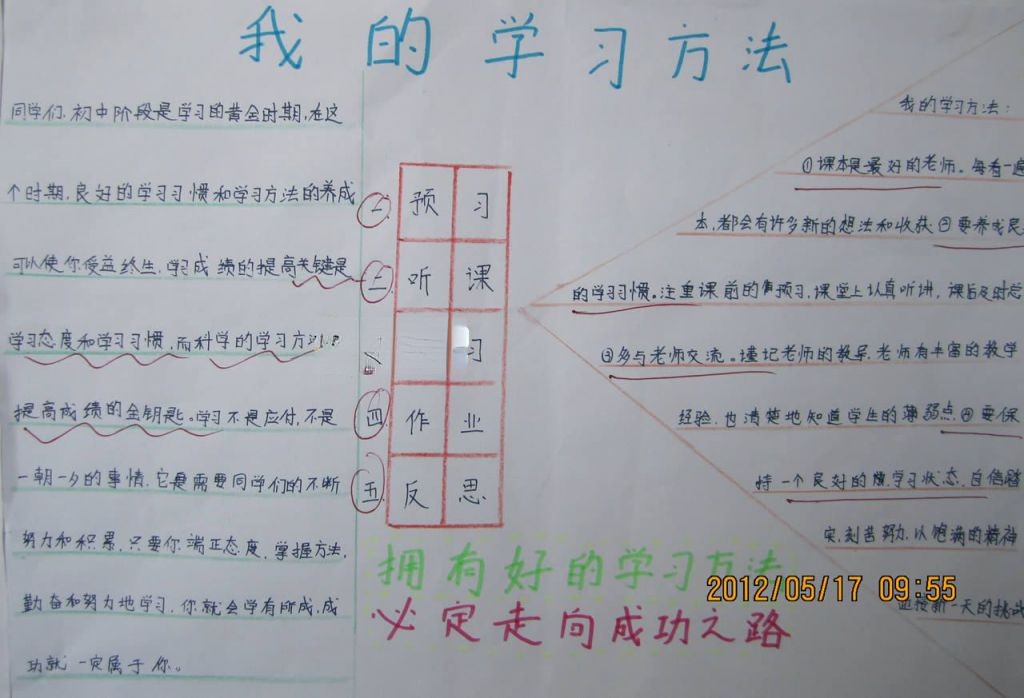 我的学习方法
同学们,初中阶段是学习的黄金时期,在这
个时期,良好的学习习惯和学习方法的养成
可以使你受益终生,学习成绩的提高关键是
学习态度和学习习惯,而科学的学习方
提高成绩的金钥匙。学习不是应付,不是
一朝一夕的事情,它是需要同学们的不断
努力和积累,只要你端正态度,掌握方法,
勤奋和努力地学习,你就会学有所成,成
功就一定属于你。
一 预习
二 听课
习
四 作业
五 反思
拥有好的学习方法
必定走向成功之路
我的学习方法:
①课本是最好的老师。每看一遍
本,都会有许多新的想法和收获②要养成良
的学习习惯。注重课前的预习,课堂上认真听讲,课后及时总
③多与老师交流。谨记老师的教导,老师有丰富的教学
经验,也清楚地知道学生的薄弱点④要保
持一个良好的学习状态,自信踏
实,刻苦努力,以饱满的精神
迎接新一天的挑战
2012/05/17 09:55